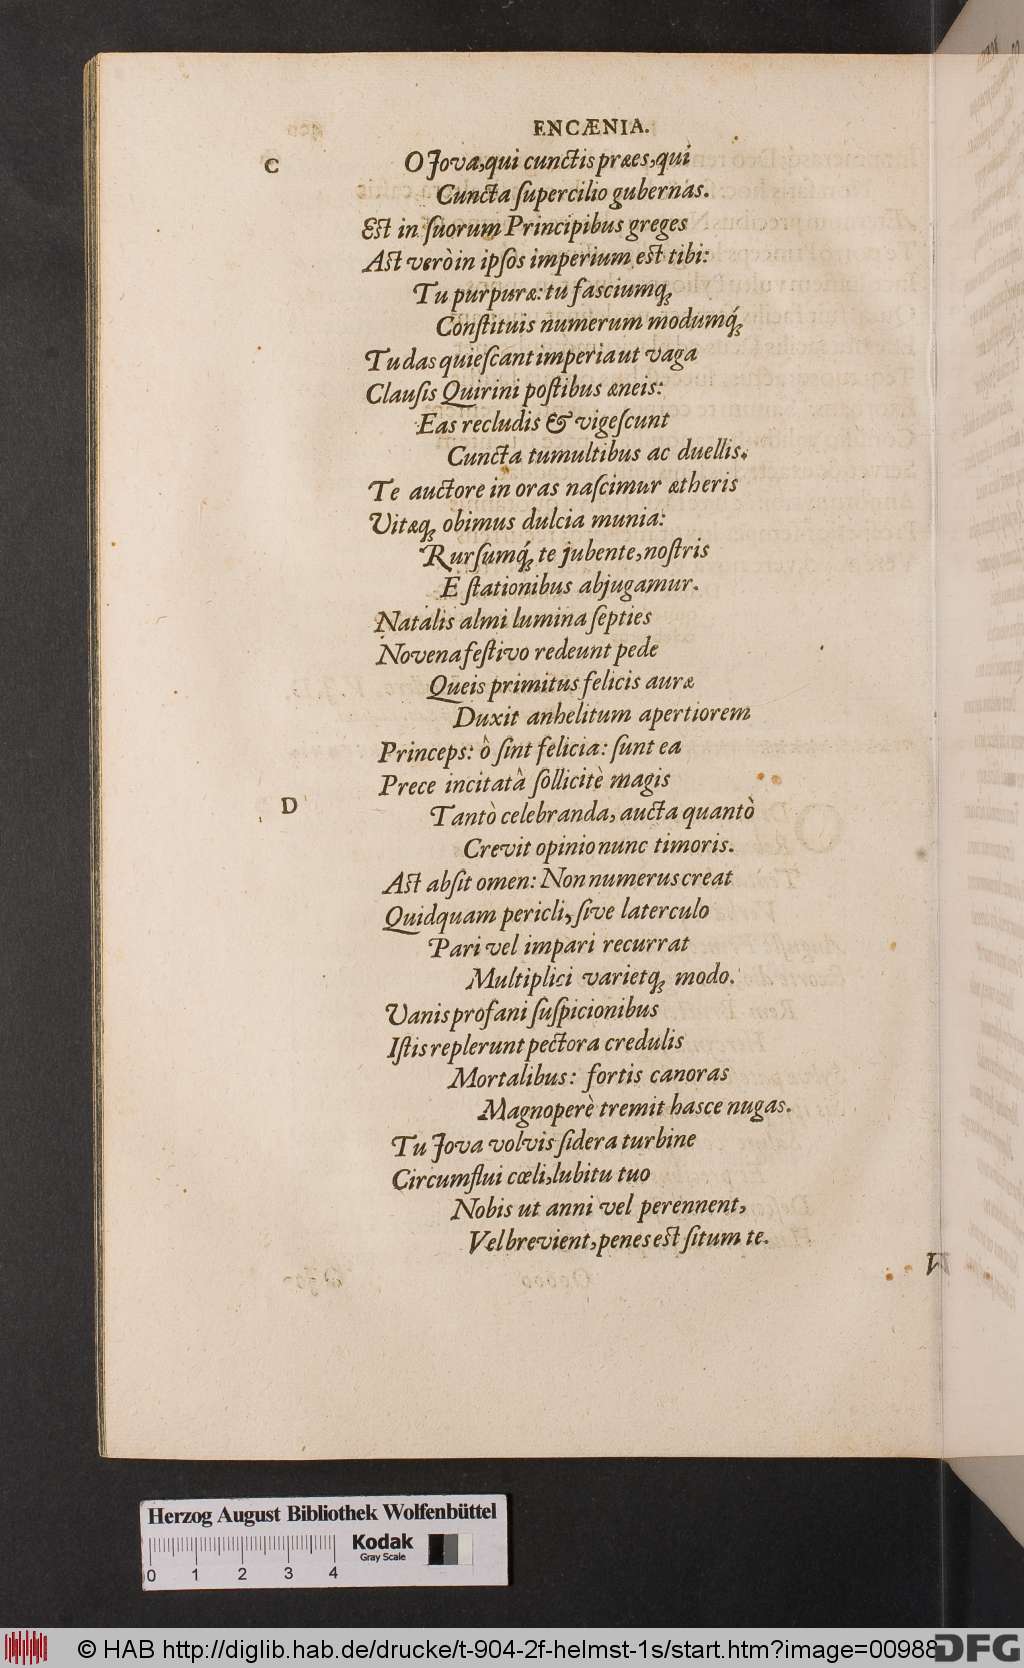 ENCÆNIA.
C
O Jova, qui cunctis præes, qui
Cuncta ſupercilio gubernas.
Est in ſuorum Principibus greges
Ast verò in ipſos imperium est tibi:
Tu purpuræ: tu faſciumq́;
Conſtituis numerum modumq́;
Tu das quieſcant imperia ut vaga
Clauſis Quirini poſtibus æneis:
Eas recludis & vigeſcunt
Cuncta tumultibus ac duellis.
Te auctore in oras naſcimur ætheris
Vitæq; obimus dulcia munia:
Rurſumq́; te jubente, noſtris
E ſtationibus abjugamur.
Natalis almi lumina ſepties
Novena feſtivo redeunt pede
Queis primitus felicis auræ
Duxit anhelitum apertiorem
Princeps: ô ſint felicia: ſunt ea
Prece incitatâ ſollicitè magis
D
Tantò celebranda, aucta quantò
Crevit opinio nunc timoris.
Ast abſit omen: Non numerus creat
Quidquam pericli, ſive laterculo
Pari vel impari recurrat
Multiplici varietq; modo.
Vanis profani ſuſpicionibus
Iſtis replerunt pectora credulis
Mortalibus: fortis canoras
Magnoperè tremit haſce nugas.
Tu Jova volvis ſidera turbine
Circumflui cœli, lubitu tuo
Nobis ut anni vel perennent,
Vel brevient, penes est ſitum te.
Herzog August Bibliothek Wolfenbüttel
Kodak
Gray Scale
0 1 2 3 4
© HAB http://diglib.hab.de/drucke/t-904-2f-helmst-1s/start.htm?image=00988
DFG